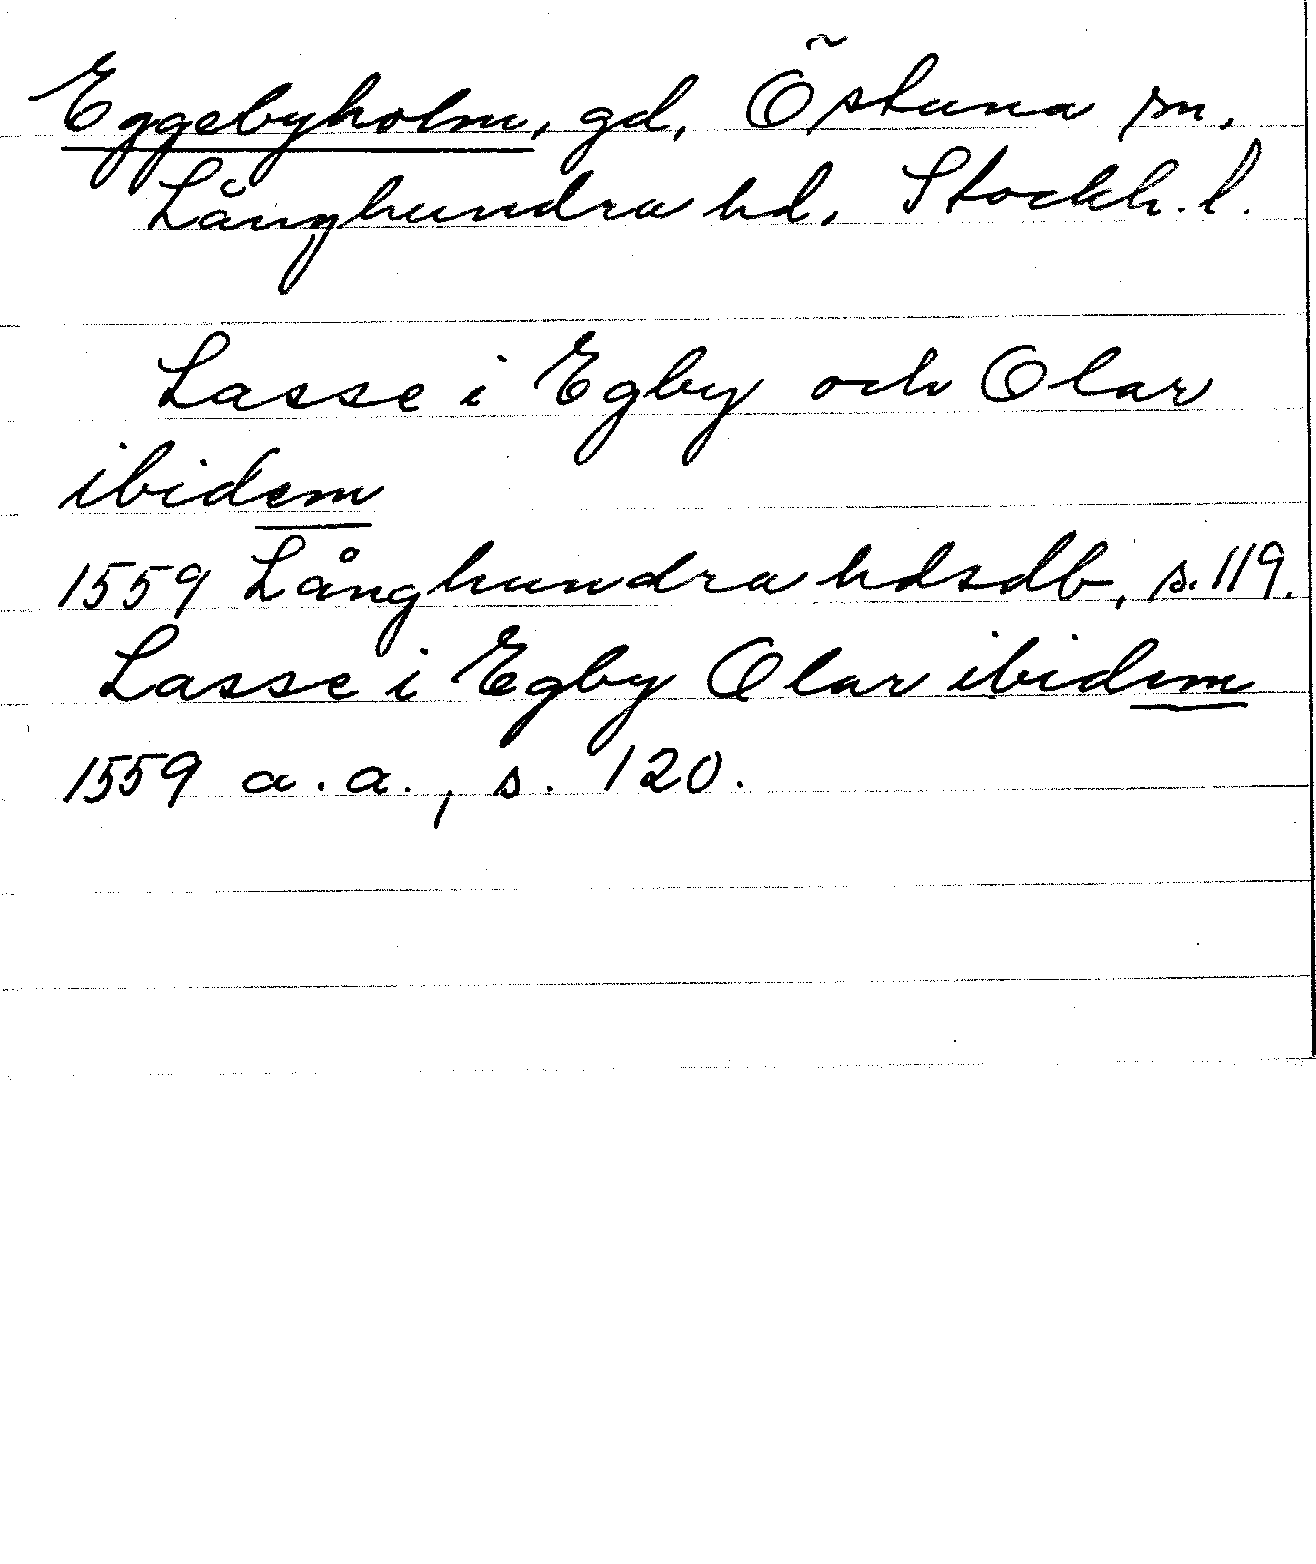 Eggebyholm, gd, Östuna sn,
Långhundra hd, Stockh. l.
Lasse i Egby och Olav
ibidem
1559 Långhundra hdsdb, s. 119.
Lasse i Egby Olav ibidem
1559 a. a., s. 120.